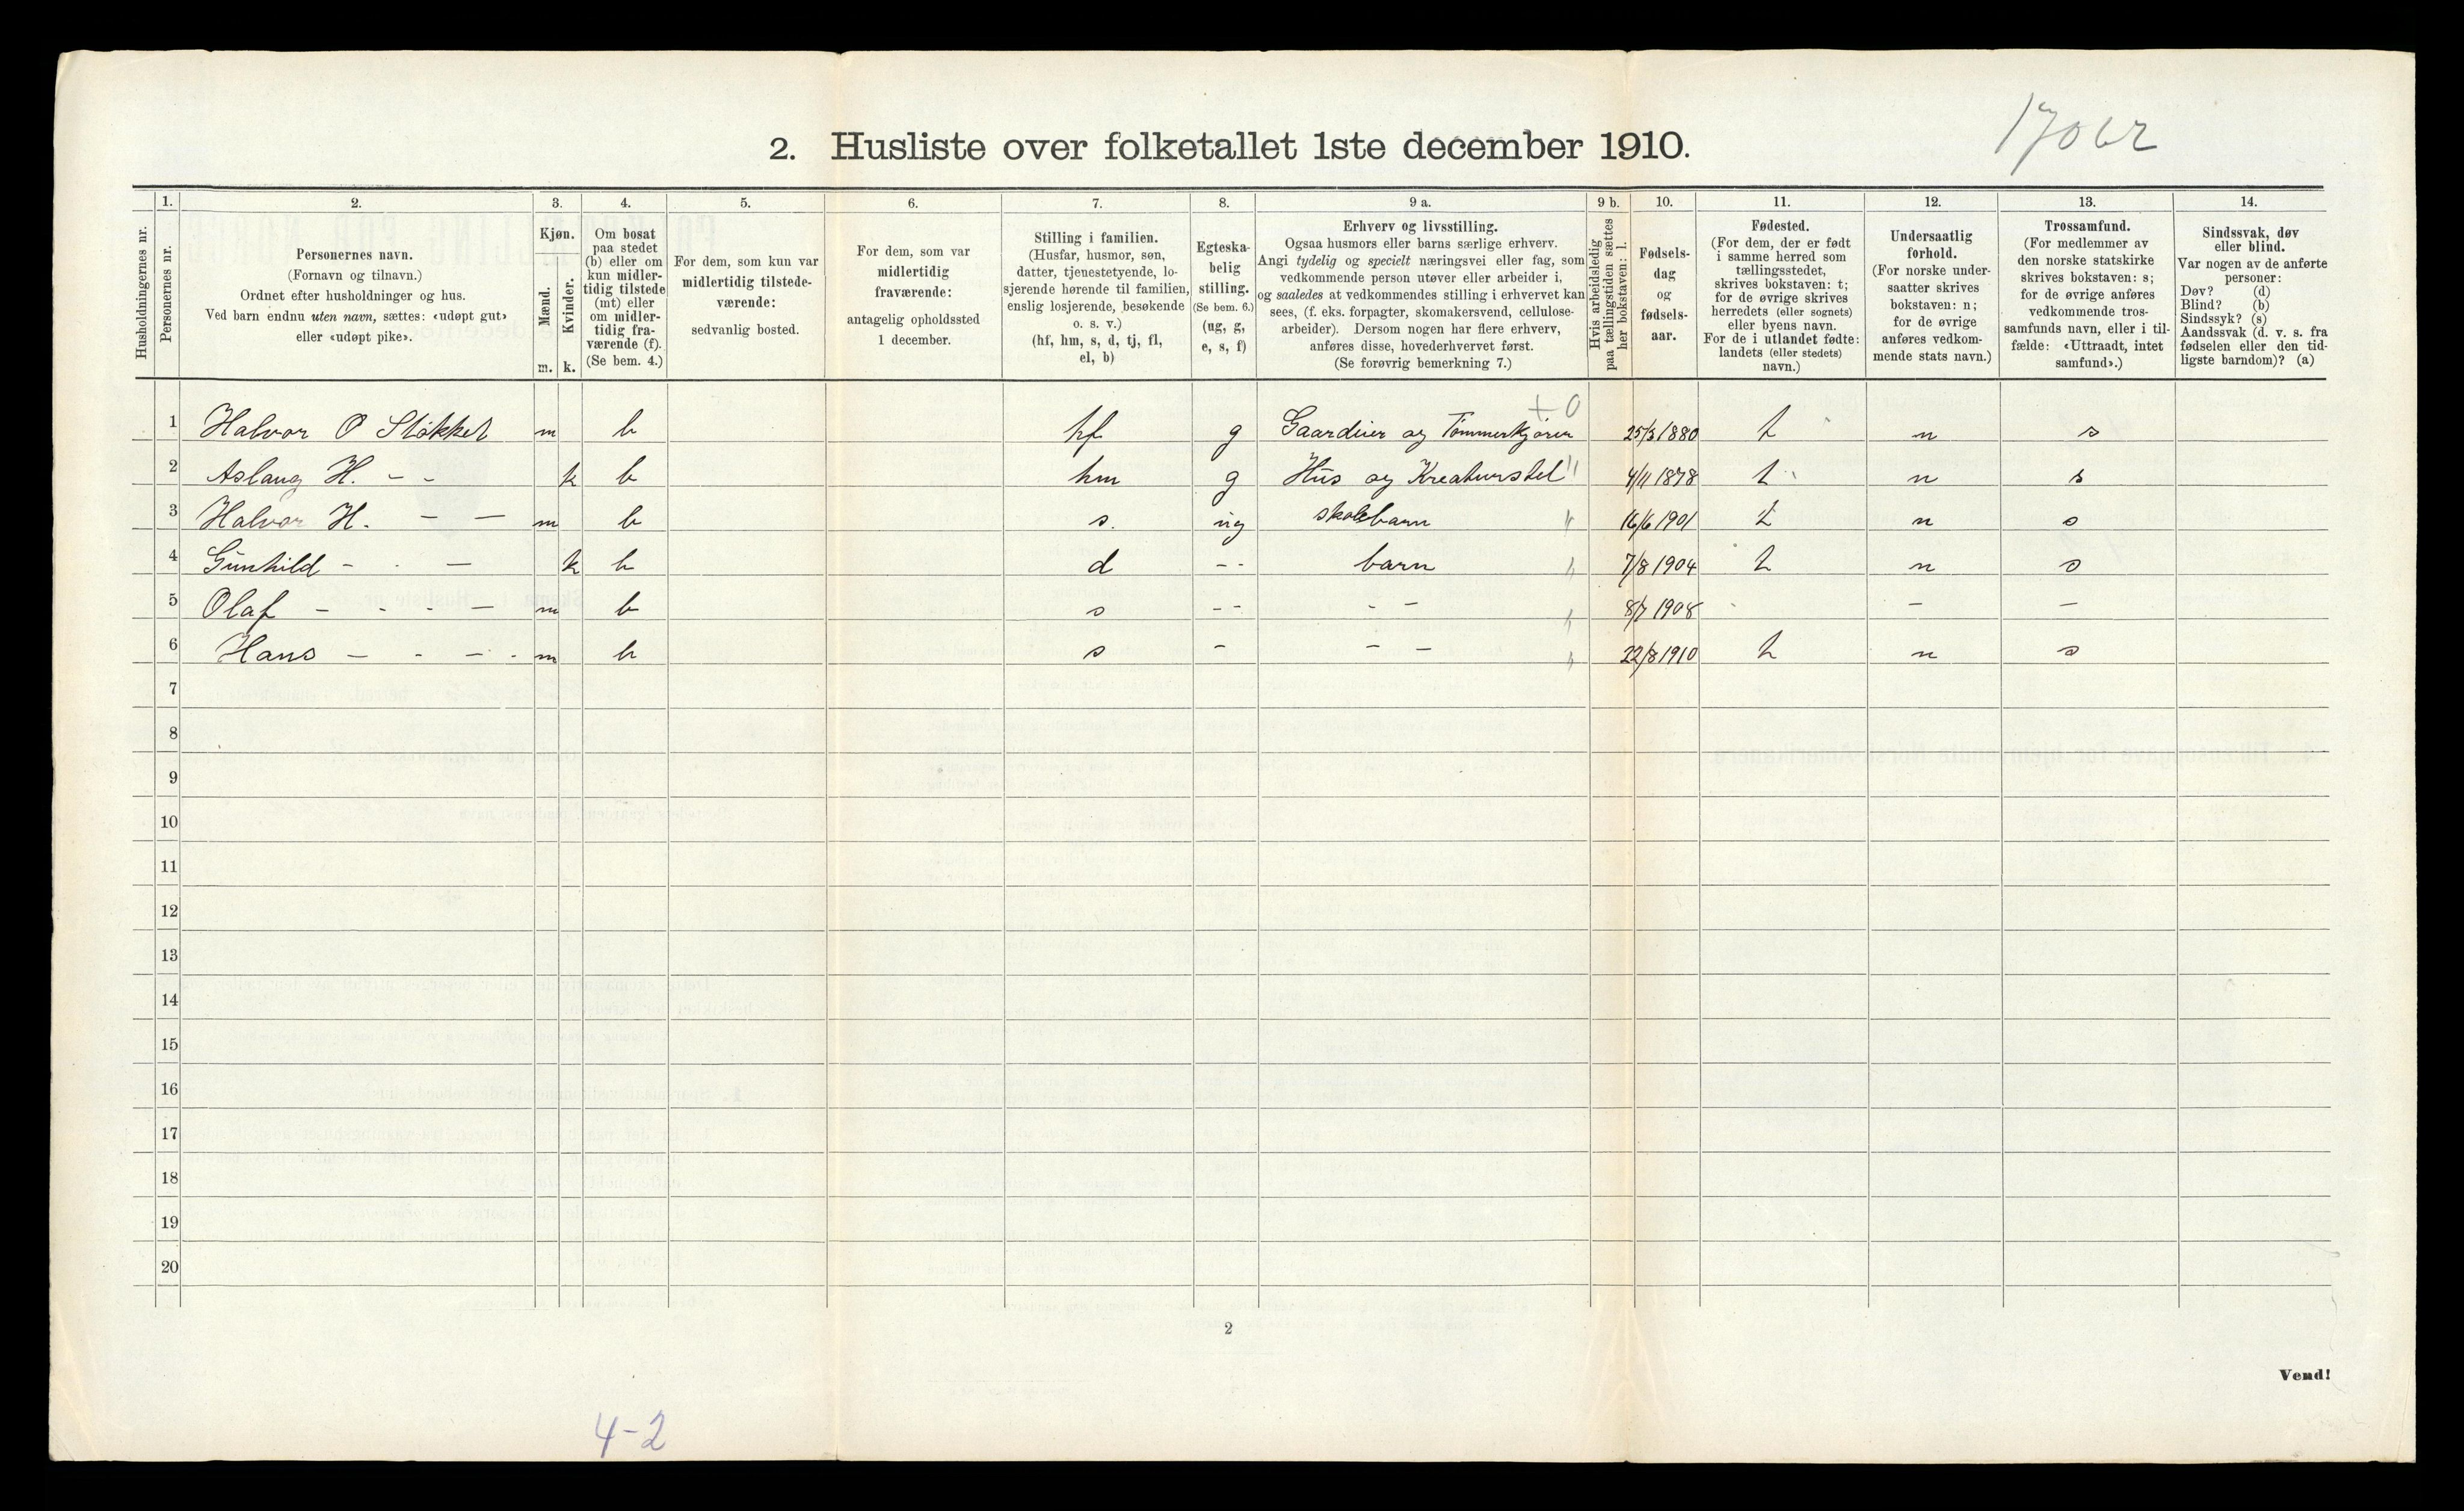 1706 2
2. Husliste over folketallet 1ste december 1910.
Husholdningernes nr.
1.
Personernes nr.
2.
Personernes navn.
(Fornavn og tilnavn.)
Ordnet efter husholdninger og hus.
Ved barn endnu uten navn, sættes: «udøpt gut»
eller «udøpt pike».
3.
Kjøn.
Mænd.
Kvinder.
m. k.
4.
Om bosat
paa stedet
(b) eller om
kun midler-
tidig tilstede
(mt) eller
om midler-
tidig fra-
værende (f).
(Se bem. 4.)
5.
For dem, som kun var
midlertidig tilstede-
værende:
sedvanlig bosted.
6.
For dem, som var
midlertidig
fraværende:
antagelig opholdssted
1 december.
7.
Stilling i familien.
(Husfar, husmor, søn,
datter, tjenestetyende, lo-
sjerende hørende til familien,
enslig losjerende, besøkende
o. s. v.)
(hf, hm, s, d, tj, fl,
el, b)
8.
Egteska-
belig
stilling.
(Se bem. 6.)
(ug, g,
e, s, f)
9 a.
Erhverv og livsstilling.
Ogsaa husmors eller barns særlige erhverv.
Angi tydelig og specielt næringsvei eller fag, som
vedkommende person utøver eller arbeider i,
og saaledes at vedkommendes stilling i erhvervet kan
sees, (f. eks. forpagter, skomakersvend, cellulose-
arbeider). Dersom nogen har flere erhverv,
anføres disse, hovederhvervet først.
(Se forøvrig bemerkning 7.)
9 b.
Hvis arbeidsledig
paa tællingstiden sættes
her bokstaven: l.
10.
Fødsels-
dag
og
fødsels-
aar.
11.
Fødested.
(For dem, der er født
i samme herred som
tællingsstedet,
skrives bokstaven: t;
for de øvrige skrives
herredets (eller sognets)
eller byens navn.
For de i utlandet fødte:
landets (eller stedets)
navn.)
12.
Undersaatlig
forhold.
(For norske under-
saatter skrives
bokstaven: n;
for de øvrige
anføres vedkom-
mende stats navn.)
13.
Trossamfund.
(For medlemmer av
den norske statskirke
skrives bokstaven: s;
for de øvrige anføres
vedkommende tros-
samfunds navn, eller i til-
fælde: «Uttraadt, intet
samfund».)
14.
Sindssvak, døv
eller blind.
Var nogen av de anførte
personer:
Døv? (d)
Blind? (b)
Sindssyk? (s)
Aandssvak (d. v. s. fra
fødselen eller den tid-
ligste barndom)? (a)
+ 0
1 Halvor O Støkket m b hf g Gaardeier og Tømmerkjører 25/3 1880 t n s
2 Aslaug H. - - k b hm g Hus og Kreaturstel " 4/11 1878 t n s
3 Halvor H. - - m b s. ug skolebarn " 16/6 1901 t n s
4 Gunhild - - - k b d - - barn " 7/8 1904 t n s
5 Olaf - - - - m b s - - - - " 8/7 1908 - - -
6 Hans - - - - m b s - - - " 22/8 1910 t n s
7
8
9
10
11
12
13
14
15
16
17
18
19
20
2
Vend!
4-2